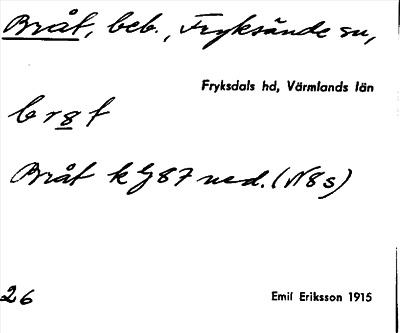 Bråt, beb., Fryksände sn,
Fryksdals hd, Värmlands län
br8t
Bråt k G87 ned. (N8s)
26
Emil Eriksson 1915